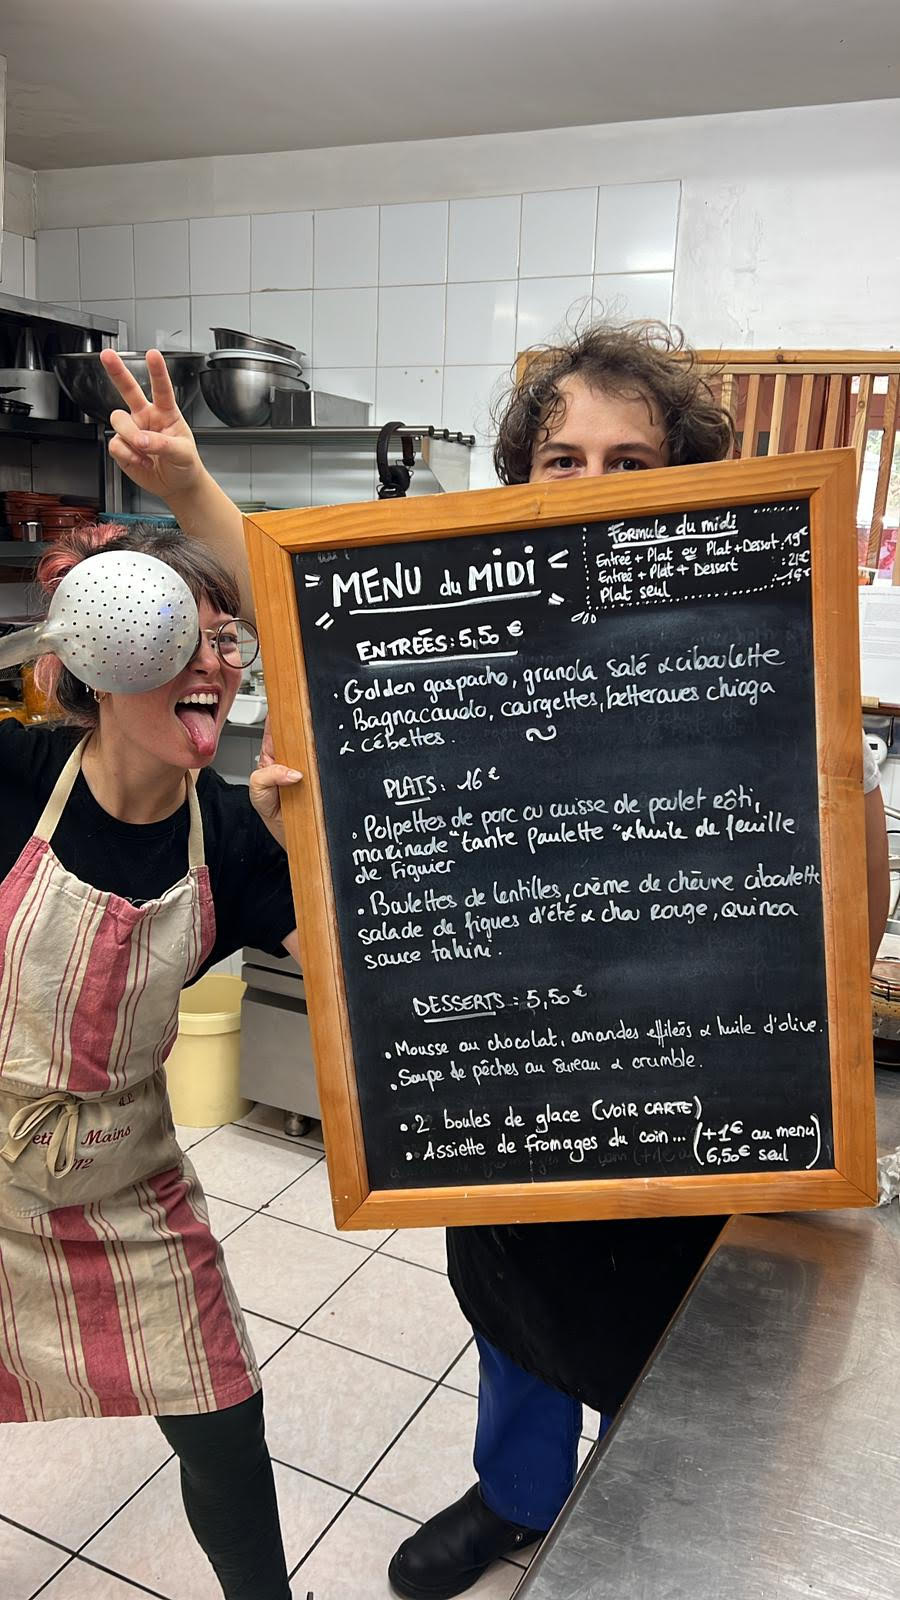 MENU du MIDI
Formule du midi
Entrée + Plat ou Plat + Dessert : 19€
Entrée + Plat + Dessert : 21€
Plat seul : 16€
ENTRÉES : 5,50 €
· Golden gaspacho, granola salé & ciboulette
· Bagnacauda, courgettes, betteraves chioga
& cébettes.
PLATS : 16 €
· Polpettes de porc ou cuisse de poulet rôti,
marinade "tante paulette" & huile de feuille
de Figuier
· Boulettes de lentilles, crème de chèvre ciboulette
salade de figues d'été & chou Rouge, quinoa
sauce tahini.
DESSERTS : 5,50 €
· Mousse au chocolat, amandes effilées & huile d'olive.
· Soupe de pêches au sureau & crumble.
· 2 boules de glace (VOIR CARTE)
· Assiette de fromages du coin... (+1€ au menu
6,50€ seul)
Mains